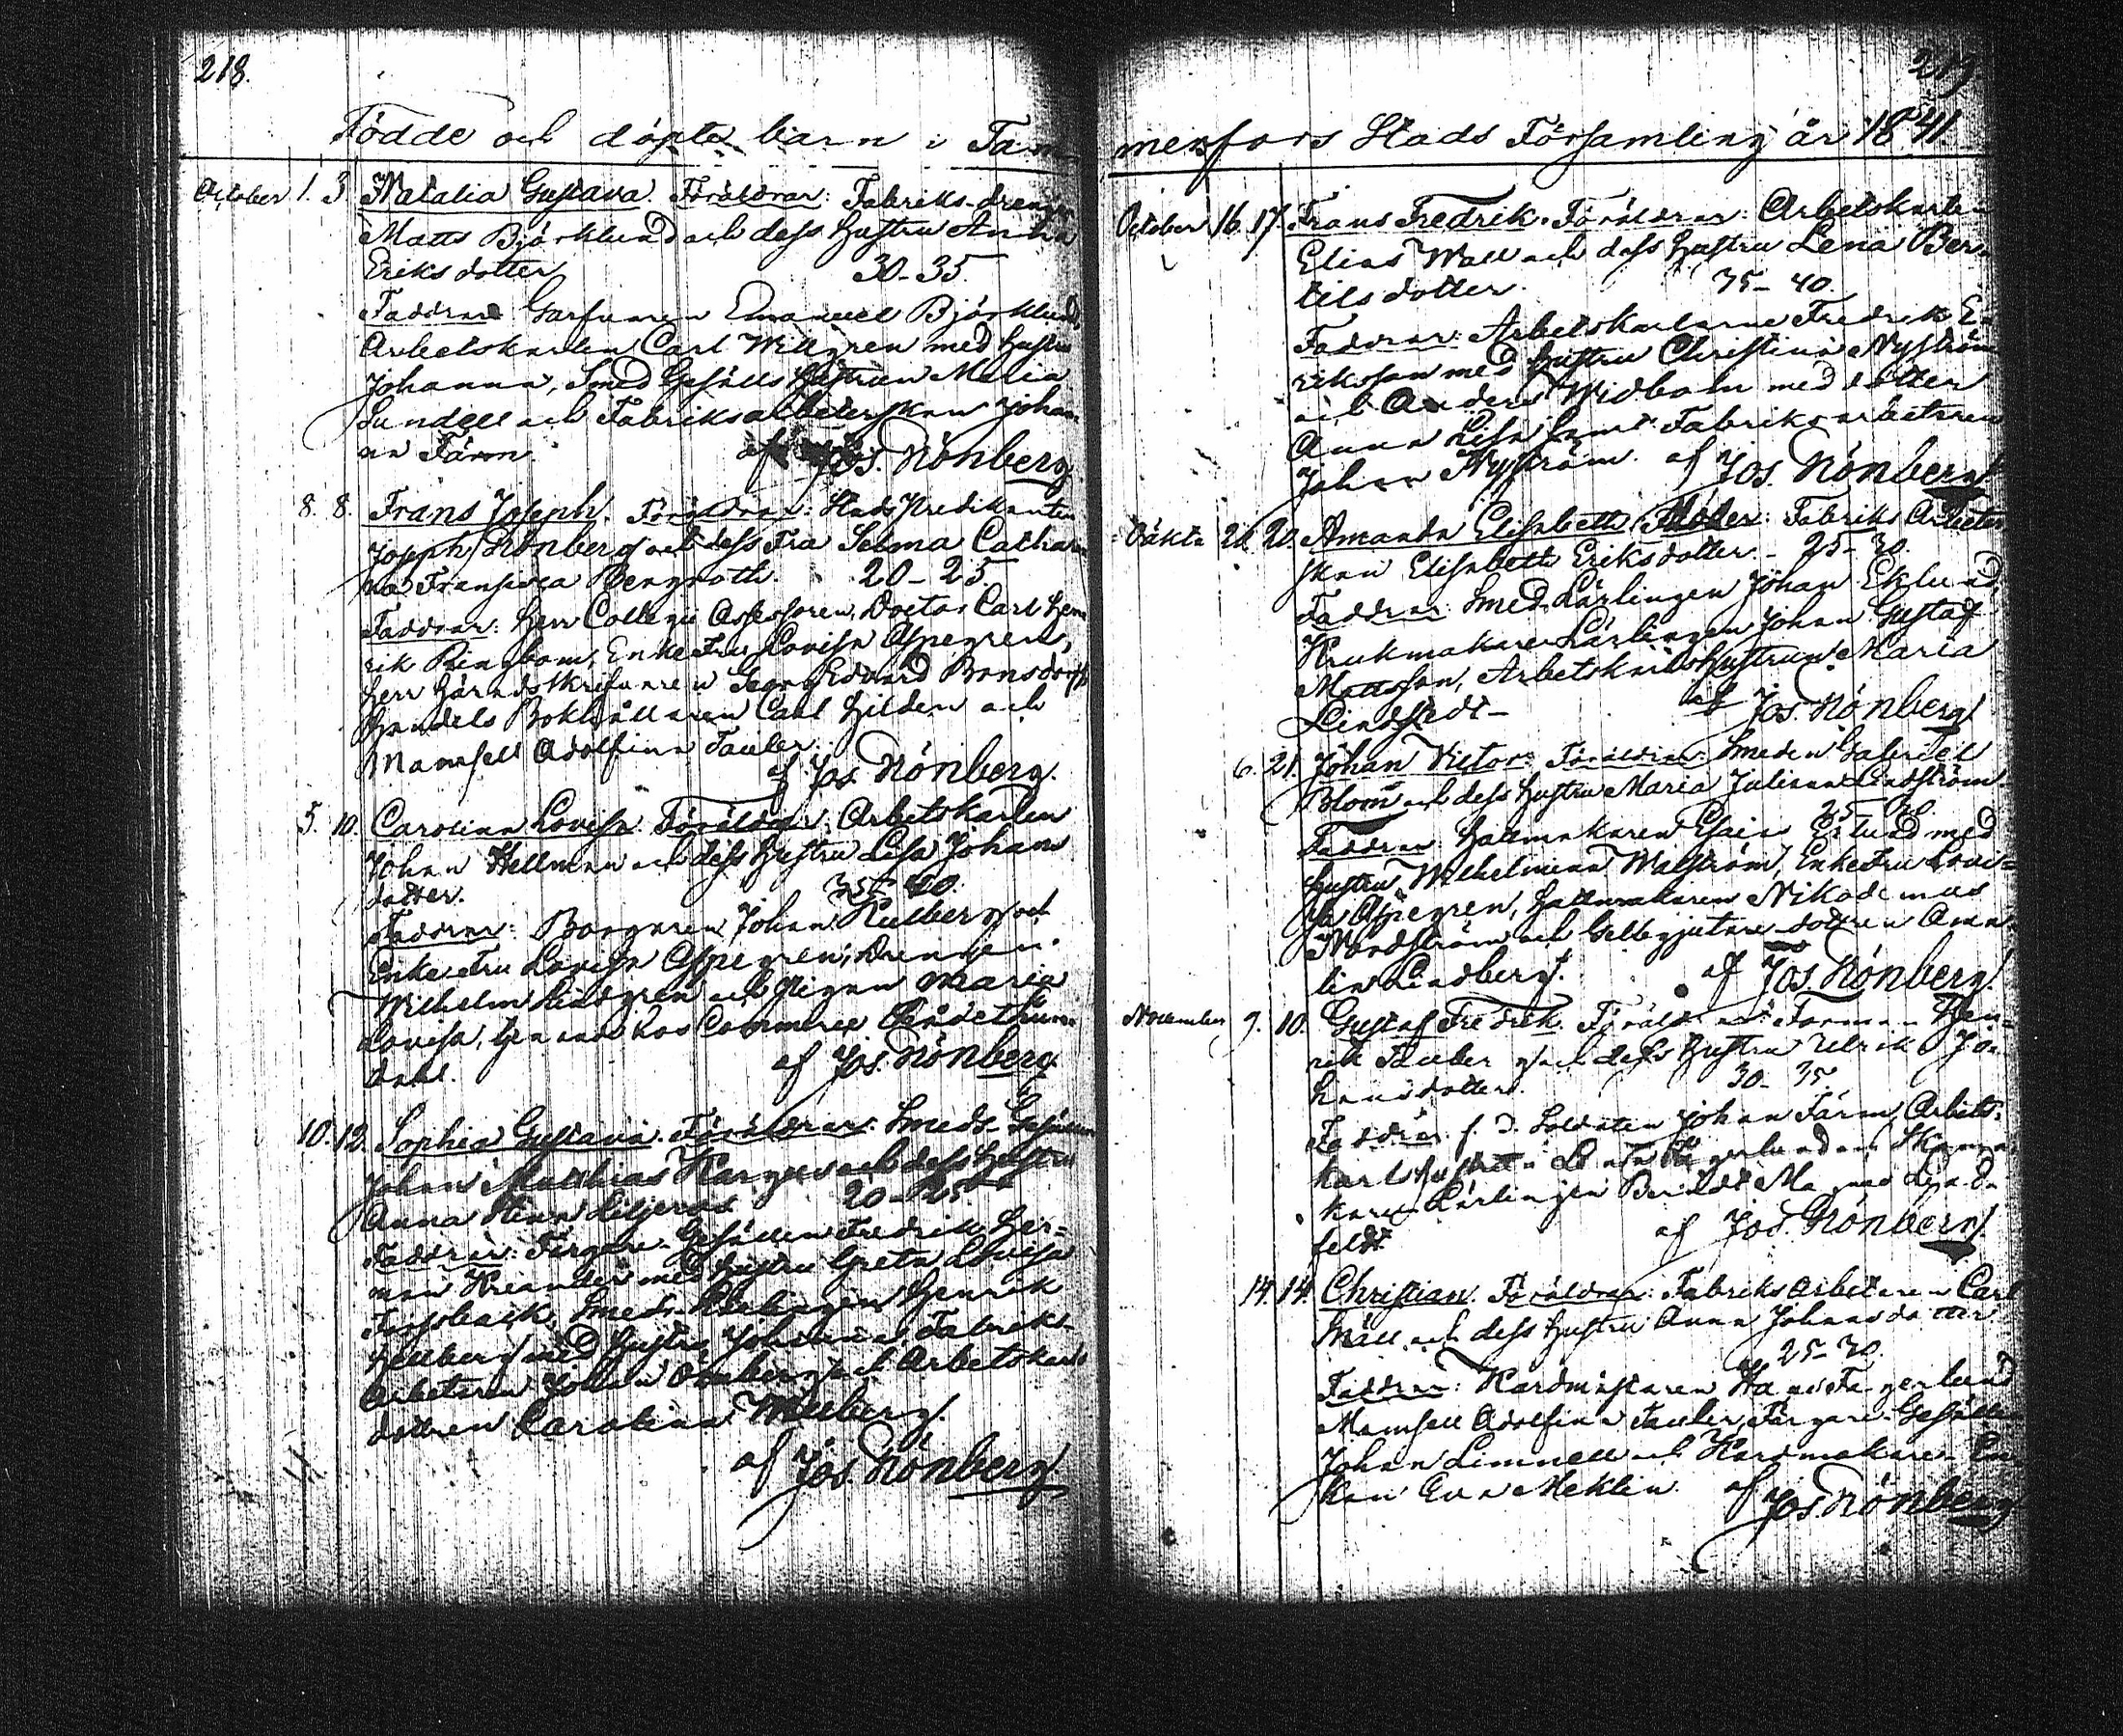 218.
Födde och döpte barn i Tam
October 1. 3 Natalia Gustava. Föräldrar: Fabriks-drengen
Matts Björklund och dess hustru Anna
Eriksdotter 30-35
Faddrar: Garfvaren Emanuel Björklund
Arbetskarlen Carl Willgren med hustru
Johanna, Smed Gesälls hustrun Maria
Sundell och Fabriksarbeterskan Johan-
na Färm. af Jos. Nönberg
8. 8. Frans Joseph. Föräldrar: Stads Predikanten
Joseph Nönberg och dess Fru Selma Catha
na Fransisca Bergroth. 20-25.
Faddrar: Herr Collegii Assessoren, Doctor Carl Hen
rik Ringbom, Enke Fru Lovisa Aspegren,
Herr Häradsskrifvaren Georg Edvard Bonsdorff
Handels Bokhållaren Carl Hilden och
Mamsell Adolfina Tauler.
af Jos. Nönberg.
5. 10. Carolina Lovisa. Föräldrar: Arbetskarlen
Johan Hellman och dess hustru Lisa Johans
dotter. 35-40.
Faddrar: Borgaren Johan Kullberg och
Enke Fru Lovisa Aspegren, Drengen
Wilhelm Lindgren och Pigan Maria
Lovisa, tjenande hos Commerce
dahl. af Jos. Nönberg
10. 12. Sophia Gustava. Föräldrar: Smeds-Gesällen
Johan Matthias och dess hustru
Anna Stina Liljeroos 20-25
Faddrar: Färgare-Gesällen Fredrik Her-
man Kreander med hustru Greta Lovisa
Smeds-Lärlingen Henrik
Hellberg med hustru Johanna Fabriks-
Arbetaren Johan och Arbetskarls
dottren Carolina Willberg.
af Jos. Nönberg
219
merfors Stads Församling år 1841.
October 16. 17. Frans Fredrik. Föräldrar: Arbetskarlen
Elias Wall och dess hustru Lena Ber-
tilsdotter. 35-40.
Faddrar: Arbetskarlarne Fredrik E-
riksson med hustru Christina Nyström
och Anders Widbom med dotter
Anna Lisa samt Fabriksarbetaren
Johan Nyström. af Jos. Nönberg
Oäkta 20. 20. Amanda Elisabeth. Moder: Fabriks Arbeter
skan Elisabeth Eriksdotter - 25-30.
Faddrar: Smed-Lärlingen Johan Eklund,
Krukmakare Lärlingen Johan Gustaf
Mattsson, Arbetskarls hustrun Maria
Lindstedt- af Jos. Nönberg
6. 21. Johan Victor. Föräldrar: Smeden Gabriel
Blom och dess hustru Maria Juliana Lindström
25 30.
Faddrar: Hattmakaren Esaias med
hustru Wilhelmina Walström, Enke Fru Lovi=
sa Aspegren, Hattmakaren Nikodemus
Nordström och Gelbgjutare-dottren Ama
lia Lindberg. af Jos. Nönberg.
November 9. 10. Gustaf Fredrik. Föräldrar: Forman Hen-
rik Tauber och dess hustru Ulrika Jo-
hansdotter. 30-35.
Faddrar: f. d. Soldaten Johan Färm, Arbets-
karl hustrun
kare-Lärlingen Berndt Magnus
feldt af Jos. Nönberg.
14. 14. Christian. Föräldrar: Fabriks Arbetaren Carl
Mäll och dess hustru Anna Johansdotter
25-30.
Faddrar: Kardmästaren Fagerlund
Mamsell Adolfina Tauler, Färgare-Gesällen
Johan Limnell och Kardmakare-En
kan Eva Meklin. af Jos. Nönberg